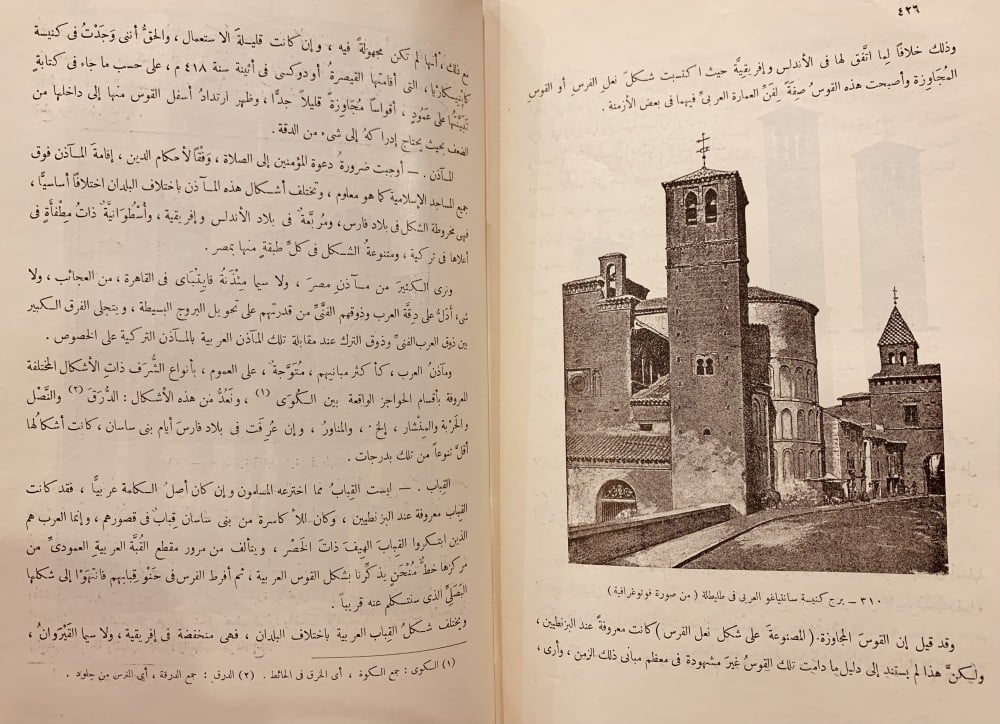 ٤٢٦
وذلك خلافًا لِما اتَّفق لها فى الأندلس وإفريقيَّة حيث اكتسبت شكلَ نعلِ الفرس أو القوسِ
المُجَاوِزة وأصبحت هذه القوسُ صِفَةً لِفَنِّ العمارة العربىِّ فيهما فى بعض الأزمنة .
٣١٠ — برج كنيسة سانتياغو العربى فى طليطلة ( من صورة فوتوغرافية )
وقد قيل إن القوسَ المجاوزة ( المصنوعةَ على شكل نعل الفرس ) كانت معروفةً عند البزنطيين ،
ولكنَّ هذا لم يستند إلى دليل ما دامت تلك القوسُ غيرَ مشهودة فى معظم مبانى ذلك الزمن ، وأرى ،
مع ذلك ، أنها لم تكن مجهولةً فيه ، وإن كانت قليلةَ الاستعمال ، والحقُّ أننى وَجَدْتُ فى كنيسة
كاپنيكارْيَا ، التى أقامتها القيصرةُ أودوكسى فى أثينة سنة ٤١٨ م ، على حسب ما جاء فى كتابةٍ
تَبَيَّنْتُها على عمُودٍ ، أقواسًا مُجَاوِزةً قليلًا جدًّا ، وظهر ارتدادُ أسفل القوس منها إلى داخلها من
الضعف بحيث يحتاج إدراكه إلى شىء من الدقة .
المآذن . — أوجبت ضرورةُ دعوة المؤمنين إلى الصلاة ، وَفْقًا لأحكام الدين ، إقامةَ المآذن فوق
جميع المساجد الإسلامية كما هو معلوم ، وتختلف أشكال هذه المآذن باختلاف البلدان اختلافًا أساسيًّا ،
فهى مخروطة الشكل فى بلاد فارس ، ومُرَبَّعةٌ فى بلاد الأندلس وإفريقية ، وأُسْطُوَانيَّةٌ ذاتُ مِطْفَأَةٍ فى
أعلاها فى تركية ، ومتنوعةُ الشكل فى كلِّ طبقةٍ منها بمصر .
ونرى الكثيرَ من مآذن مصرَ ، ولا سيما مِئْذَنةُ قايتباى فى القاهرة ، من العجائب ، ولا
شىءَ أدَلُّ على دِقَّة العرب وذوقهم الفنِّىِّ من قدرتهم على تحويل البروج البسيطة ، ويتجلى الفرق الكبير
بين ذوق العرب الفنىِّ وذوق الترك عند مقابلة تلك المآذن العربية بالمآذن التركية على الخصوص .
ومآذنُ العرب ، كأكثر مبانيهم ، مُتَوَّجةٌ ، على العموم ، بأنواع الشُّرَف ذاتِ الأشكال المختلفة
المعروفة بأقسام الحواجز الواقعة بين الكُوَى (١) ، ونَعُدُّ من هذه الأشكال : الدَّرَقَ (٢) والنَّصْل
والحَرْبة والمنشار ، إلخ . ، والمناورُ ، وإن عُرِفت فى بلاد فارسَ أيام بنى ساسان ، كانت أشكالُها
أقلَّ تنوعاً من تلك بدرجات .
القِباب . — ليست القبابُ مما اخترعه المسلمون وإن كان أصلُ الكلمة عربيًّا ، فقد كانت
القباب معروفة عند البزنطيين ، وكان للأكاسرة من بنى ساسان قِبابٌ فى قصورهم ، وإنما العرب هم
الذين ابتكروا القِبابَ الهِيفَ ذاتَ الخَصْر ، ويتألف من مرور مقطع القُبَّة العربيةِ العمودىِّ من
مركزها خطٌّ مُنْحَنٍ يذكِّرنا بشكل القوس العربية ، ثم أفرط الفرس فى حَنْوِ قبابهم فانتهَوْا إلى شكلها
البَصَلىِّ الذى سنتكلم عنه قريباً .
ويختلف شكلُ القِباب العربية باختلاف البلدان ، فهى منخفضة فى إفريقية ، ولا سيما القَيْرَوانُ ،
(١) الكوى : جمع الكوة ، أى الخرق فى الحائط . (٢) الدرق : جمع الدرقة ، أى الترس من جلود .